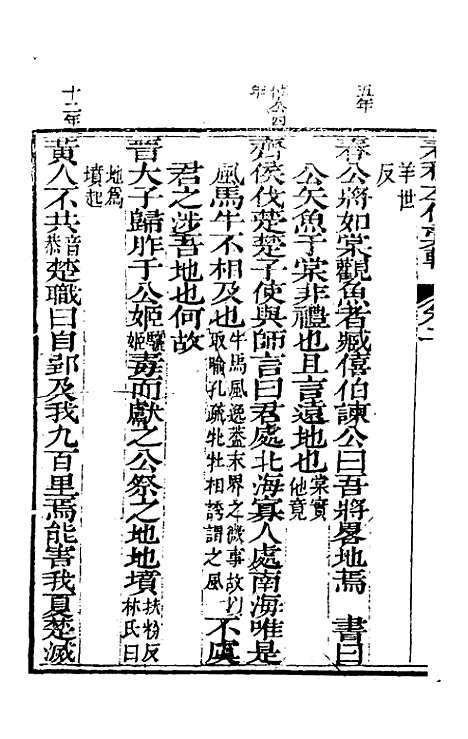 春秋左傳
羊世
反
五年
春公將如棠觀魚者臧僖伯諫公曰吾將畧地焉　書曰
公矢魚于棠非禮也且言遠地也棠實
他竟
僖公四
年
齊侯伐楚楚子使與師言曰君處北海寡人處南海唯是
風馬牛不相及也牛馬風逸蓋末界之微事故以
取喻孔疏牝牡相誘謂之風不虞
君之涉吾地也何故
晉大子歸胙于公姬驪
姬毒而獻之公祭之地地墳扶粉反
林氏曰
地爲
墳起
十二年
黃人不共音
恭楚職曰自郢及我九百里焉能害我夏楚滅